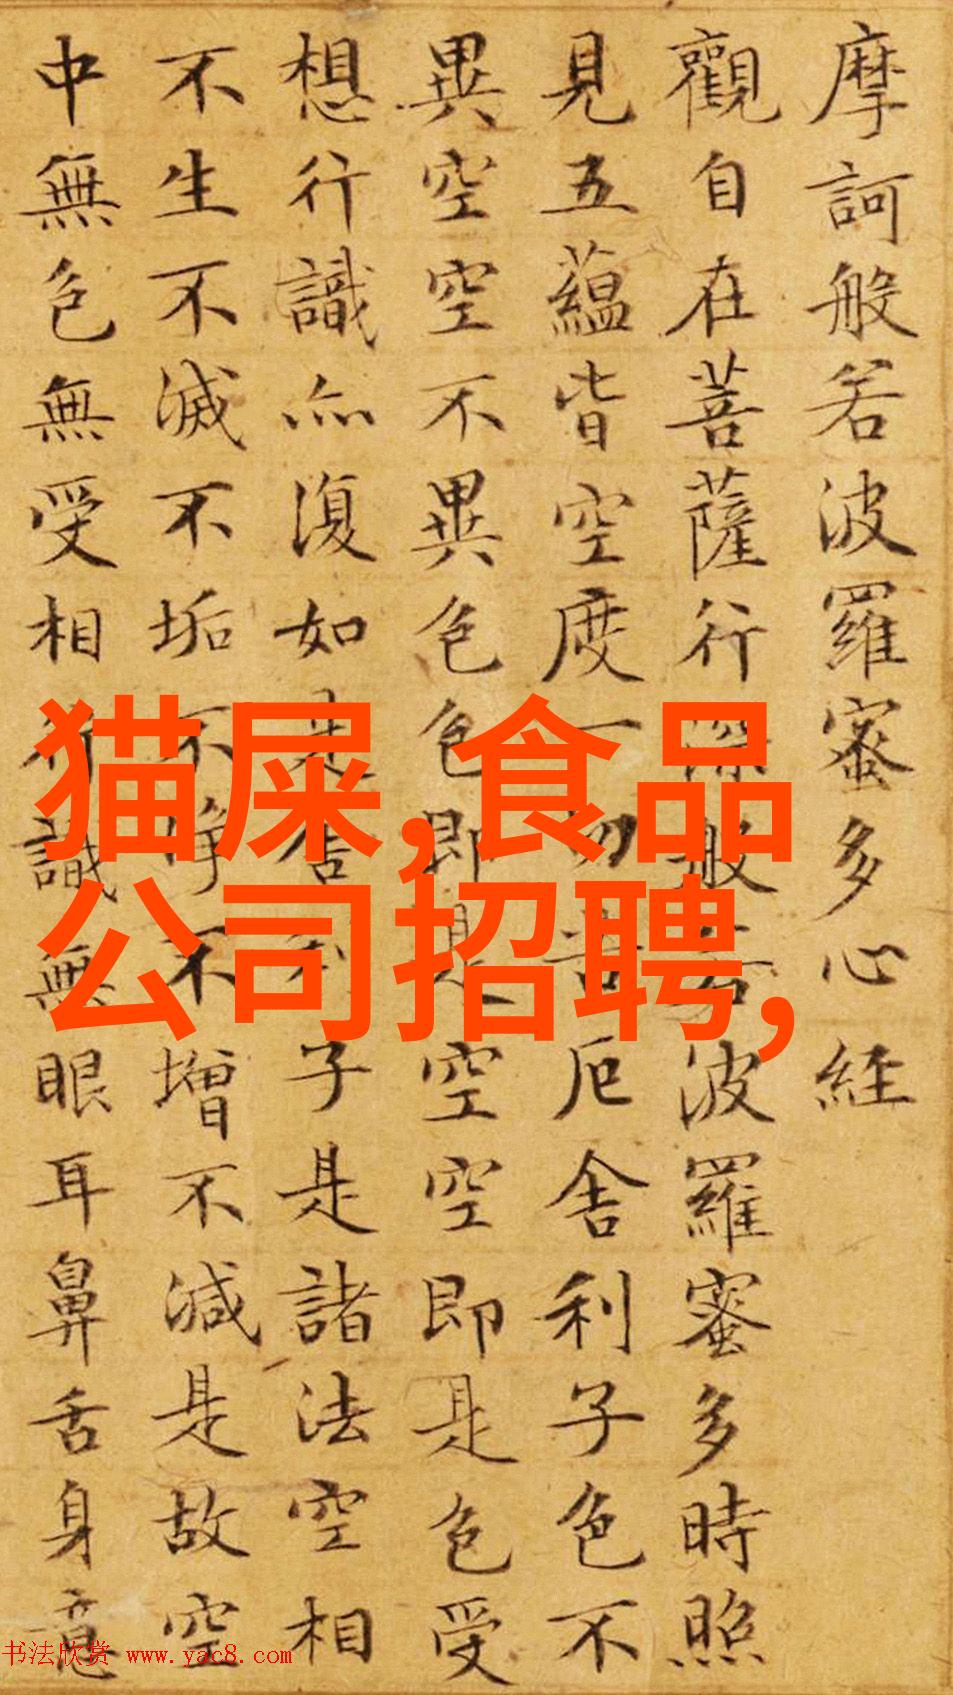 摩訶般若波羅蜜多心經
觀自在菩薩行深般若波羅蜜多時照
見五蘊皆空度一切苦厄舍利子色不
異空空不異色色即是空空即是色受
想行識亦復如是舍利子是諸法空相
不生不滅不垢不淨不增不減是故空
中無色無受相行識無眼耳鼻舌身意
猫屎,食品
公司招聘,
书法欣赏 www.yac8.com